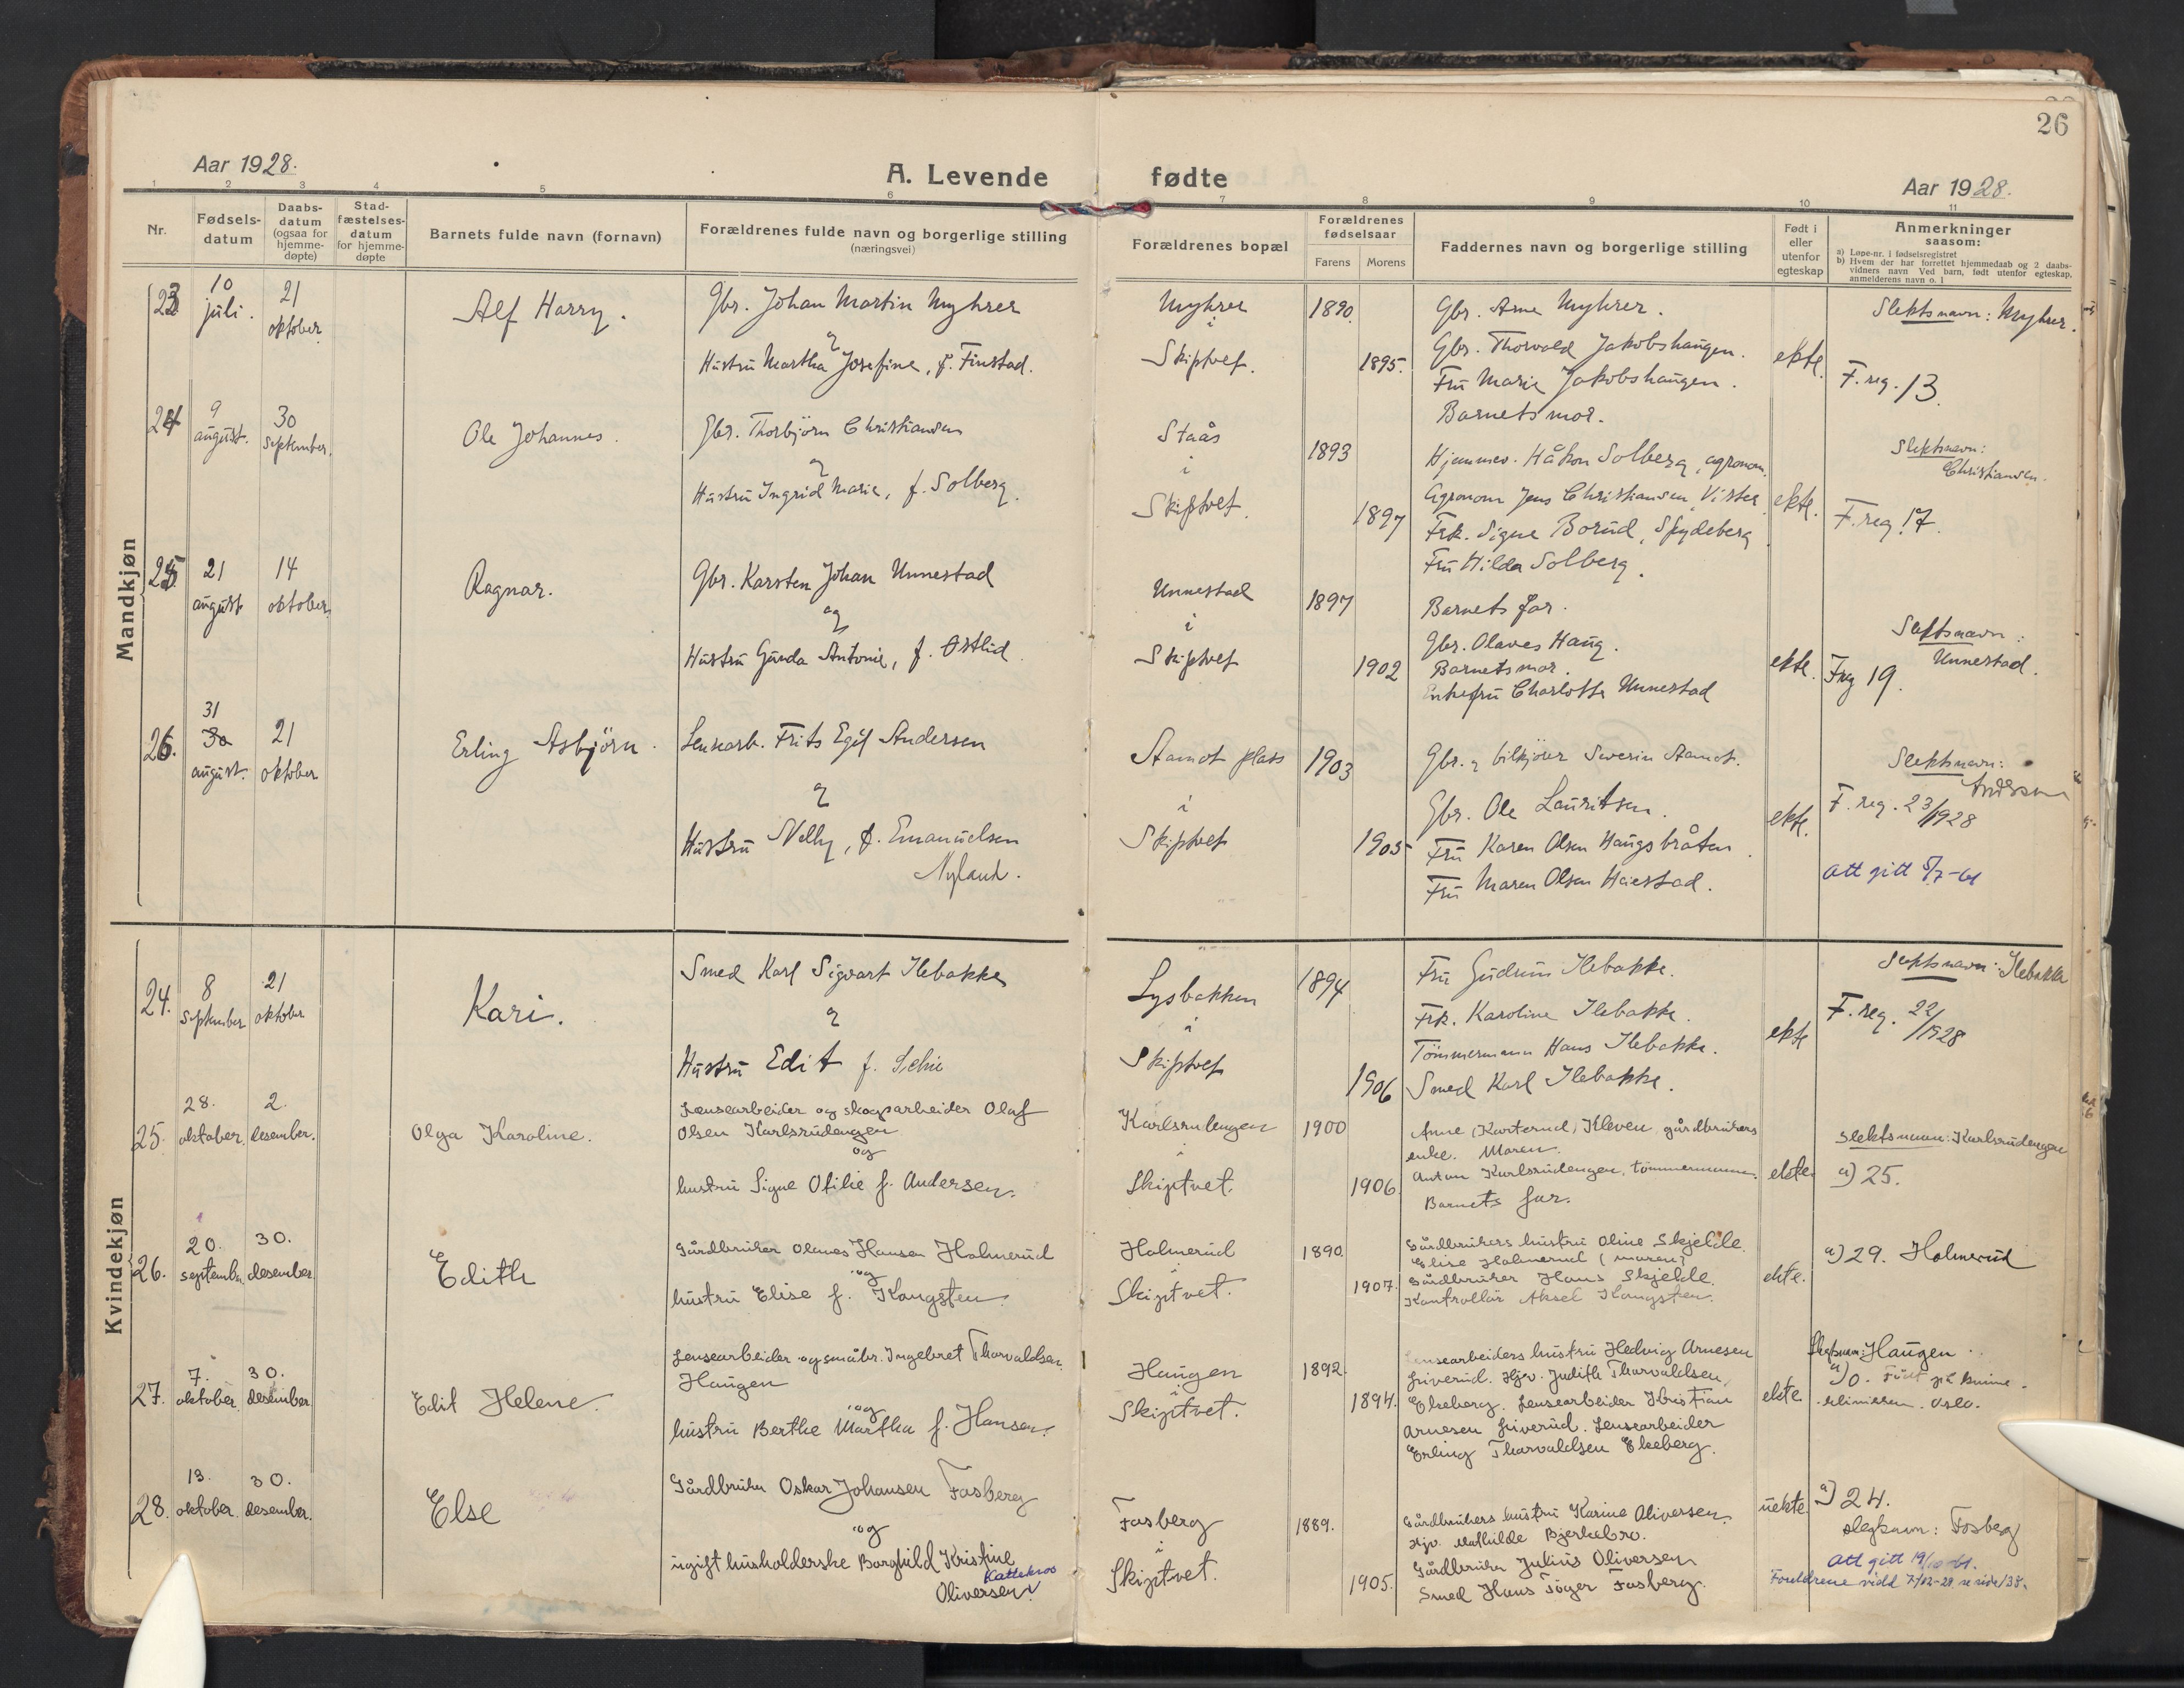 26
Aar 1928.
A. Levende fødte
Aar 1928.
1 2 3 4 5 6 7 8 9 10 11
Nr.
Fødsels-
datum
Daabs-
datum
(ogsaa for
hjemme-
døpte)
Stad-
fæstelses-
datum
for hjemme-
døpte
Barnets fulde navn (fornavn)
Forældrenes fulde navn og borgerlige stilling
(næringsvei)
Forældrenes bopæl
Forældrenes
fødselsaar
Farens Morens
Faddernes navn og borgerlige stilling
Født i
eller
utenfor
egteskap
Anmerkninger
saasom:
a) Løpe-nr. i fødselsregistret
b) Hvem der har forrettet hjemmedaab og 2 daabs-
vidners navn Ved barn, født utenfor egteskap,
anmelderens navn o. l
Mandkjøn
23
10
juli.
21
oktober
Alf Harry.
Gbr. Johan Martin Myhrer
Hustru Martha Josefine, f. Finstad.
Myhrer
i
Skiptvet.
1890.
1895.
Gbr. Arne Myhrer.
Gbr. Thorvald Jakobshaugen.
Fru Marie Jakobshaugen.
Barnets mor.
ekte.
Slektsnavn: Myhrer.
F. reg. 13.
24
9
august.
30
September.
Ole Johannes.
Gbr. Thorbjörn Christiansen
Hustru Ingrid Marie, f. Solberg.
Staås
i
Skiptvet.
1893
1897
Hjemmev. Håkon Solberg, agronom.
Agronom Jens Christiansen, Vister
Frk. Signe Borud, Spydeberg
Fru Hilda Solberg.
ekte.
Slektsnavn:
Christiansen.
F. reg. 17.
25
21
august
14
oktober
Ragnar.
Gbr. Karsten Johan Unnestad
og
Hustru Gunda Antonie, f. Østlid
Unnestad
i
Skiptvet
1897
1902
Barnets far.
Gbr. Olaves Haug.
Barnets mor.
Enkefru Charlotte Unnestad
ekte.
Slektsnavn:
Unnestad.
Freg 19.
26.
31
30
august.
21
oktober
Erling Asbjörn.
Lensearb. Frits Egil Andersen
Hustru Nelly, f. Emanuelsen
Nyland.
Stamot plass
i
Skiptvet
1903
1905
Gbr. & bilkjörer Severin Stamot.
Gbr. Ole Lauritsen.
Fru Karen Olsen Haugsbråten.
Fru Maren Olsen Haiestad.
ekte.
Slektsnavn:
Andersen
F. reg. 23/1928
Att gitt 5/7-61
Kvindekjøn
24.
8
September
21
oktober
Kari.
Smed Karl Sigvart Ilebakke
Hustru Edit f. Schie
Lysbakken
i
Skiptvet
1894
1906
Fru Gudrun Ilebakke.
Frk. Karoline Ilebakke.
Tömmermann Hans Ilebakke.
Smed Karl Ilebakke.
ekte
Slektsnavn: Ilebakke
F. reg. 22/1928
25.
28.
oktober.
2.
desember.
Olga Karoline.
Lensearbeider og skogsarbeider Olaf
Olsen Karlsrudengen
og
hustru Signe Otilie f. Andersen.
Karlsrudengen
i
Skiptvet.
1900
1906.
Anne (Karterud) Kleven, gårdbrukers
enke. Moren.
Anton Karlsrudengen, tömmermann.
Barnets far.
ekte.
Slektsnavn: Karlsrudengen
a) 25.
26.
20.
september.
30.
desember.
Edith
Gårdbruker Olaves Hansen Holmerud
og
hustru Elise f. Kongsten.
Holmerud
i
Skiptvet.
1890.
1907.
Gårdbrukers hustru Oline Skjelde.
Elise Holmerud (moren)
Gårdbruker Hans Skjelde.
Kontrollör Aksel Kongsten.
ekte.
a) 29. Holmerud
27.
7.
oktober.
30.
desember.
Edit Helene.
Lensearbeider og småbr. Ingebret Thorvaldsen
Haugen
og
hustru Berthe Martha f. Hansen.
Haugen
i
Skiptvet.
1892.
1894.
Lensearbeiders hustru Hedvig Arnesen
Griverud. Hjv. Judith Thorvaldsen,
Ekeberg. Lensearbeider Kristian
Arnesen Griverud. Lensearbeider
Erling Thorvaldsen Ekeberg.
ekte.
Slektsnavn: Haugen.
a) 0. Födt på kvinne-
klinikken. Oslo.
28.
13.
oktober.
30.
desember.
Else
Gårdbruker Oskar Johansen Fosberg
og
ugift husholderske Borghild Kristine
Kattekroo
Oliversen.
Fosberg
i
Skiptvet.
1889.
1905.
Gårdbrukers hustru Karine Oliversen.
Hjv. Mathilde Bjerkebro.
Gårdbruker Julius Oliversen
Smed Hans Töger Fosberg.
uekte.
a) 24.
slegtsnavn: Fosberg
Att gitt 19/10-61.
Foreldrene viedd 7/12-28 se side 138.